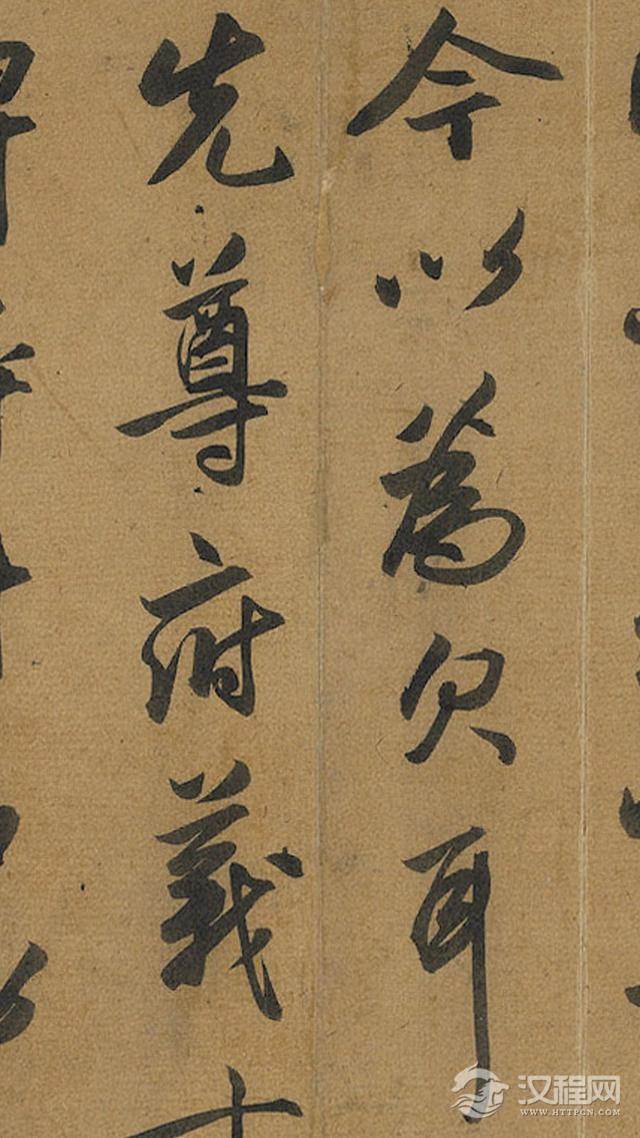 今以為欠耳
先尊府義
汉程网
WWW.HTTPCN.COM